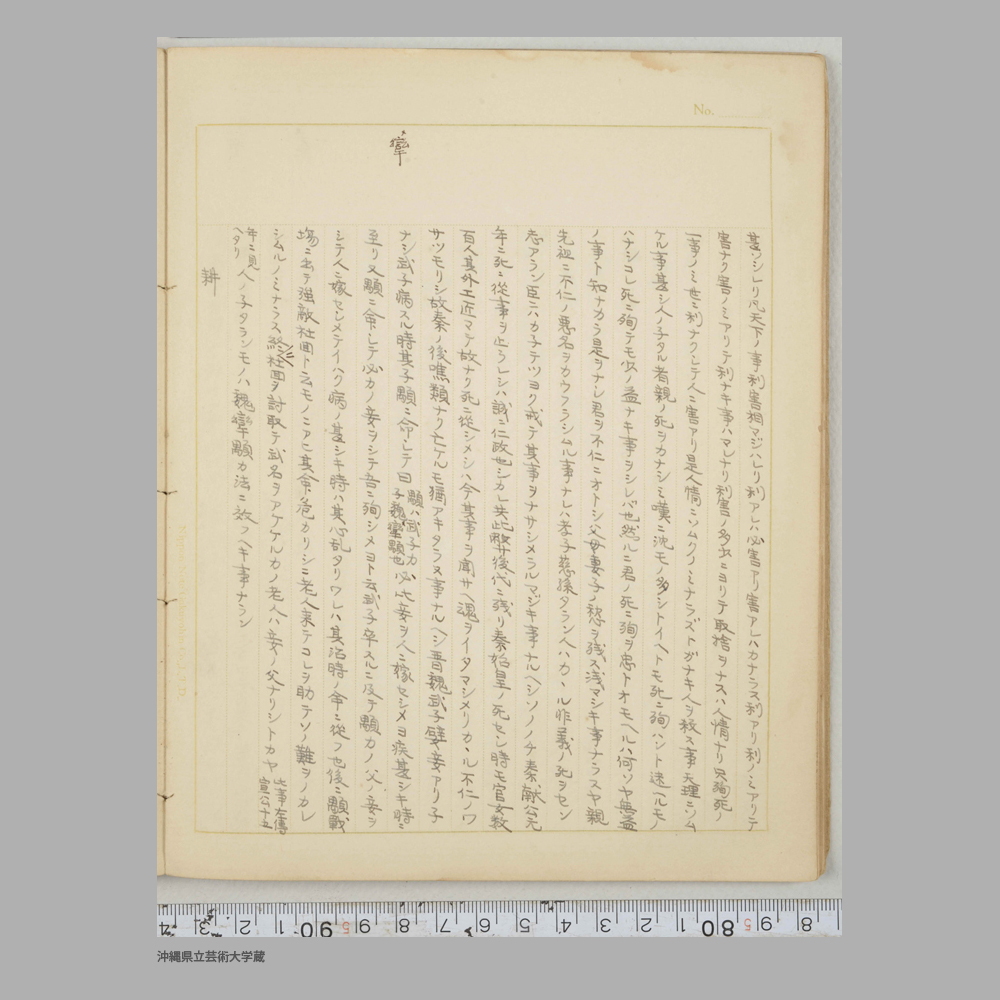 No.
犖
甚シレリ凡天下ノ事利害相マジハレリ利アレハ必害アリ害アレハカナラス利アリ利ノミアリテ
害ナク害ノミアリテ利ナキ事ハマレナリ利害ノ多少ニヨリテ取捨ヲナスハ人情ナリ只殉死ノ
事ノミ世ニ利ナクシテ人ニ害アリ是人情ニソムクノミナラズトガナキ人ヲ殺ス事天理ニソム
ケル事甚シ人ノ子タル者親ノ死ヲカナシミ嘆ニ沈モノ多シトイヘトモ死ニ殉ハント迷ヘルモノ
ハナシコレ死ニ殉テモ少ノ益ナキ事ヲシレバ也然ルニ君ノ死ニ殉ヲ忠トオモヘルハ何ソヤ無益
ノ事ト知ナカラ是ヲナシ君ヲ不仁ニオトシ父母妻子ノ愁ヲ残ス浅マシキ事ナラスヤ親
先祖ニ不仁ノ悪名ヲカウフラシムル事ナレハ孝子慈孫タラン人ハカヽル非義ノ死ヲセン
志アラン臣ニハカ子テツヨク戒テ其事ヲナサシメラルマジキ事ナルヘシソノノチ秦献公元
年ニ死ニ從事ヲ止ラレシハ誠ニ仁政也シカレ共此敝サ後代ニ残リ秦始皇ノ死セシ時モ官女数
百人其外工匠マテ故ナク死ニ從シメシハ今其事ヲ聞サヘ魂ヲイタマシメリカヽル不仁ノワ
サツモリシ故秦ノ後噍類ナク亡ケルモ猶アキタラヌ事ナルヘシ晋魏武子嬖妾アリ子
ナシ武子病スル時其子顆ニ命シテ曰 顆ハ武子カ子魏犖顆也 必此妾ヲ人ニ嫁セシメヨ疾甚シキ時ニ
至リ又顆ニ命シテ必カノ妾ヲシテ吾ニ殉シメヨト云武子卒スルニ及テ顆カノ父ノ妾ヲ
シテ人ニ嫁セシメテイハク病ノ甚シキ時ハ其心乱タリワレハ其治時ノ命ニ從フ也後ニ顆戰
場ニ出テ強敵杜回ト云モノニアヒ其命危カリシニ老人来テコレヲ助テソノ難ヲノカレ
シムルノミナラス終杜回ヲ討取テ武名ヲアケケルカノ老人ハ妾ノ父ナリシトカヤ 此事左傳宣公十五
年ニ見ヘタリ 人ノ子タランモノハ魏犖顆カ法ニ效フヘキ事ナラン
耕
沖縄県立芸術大学蔵